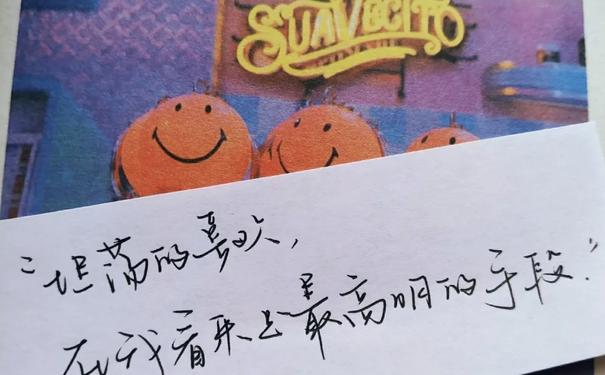 SUAVECITO
“坦荡的喜欢,
在我看来是最高明的手段.”